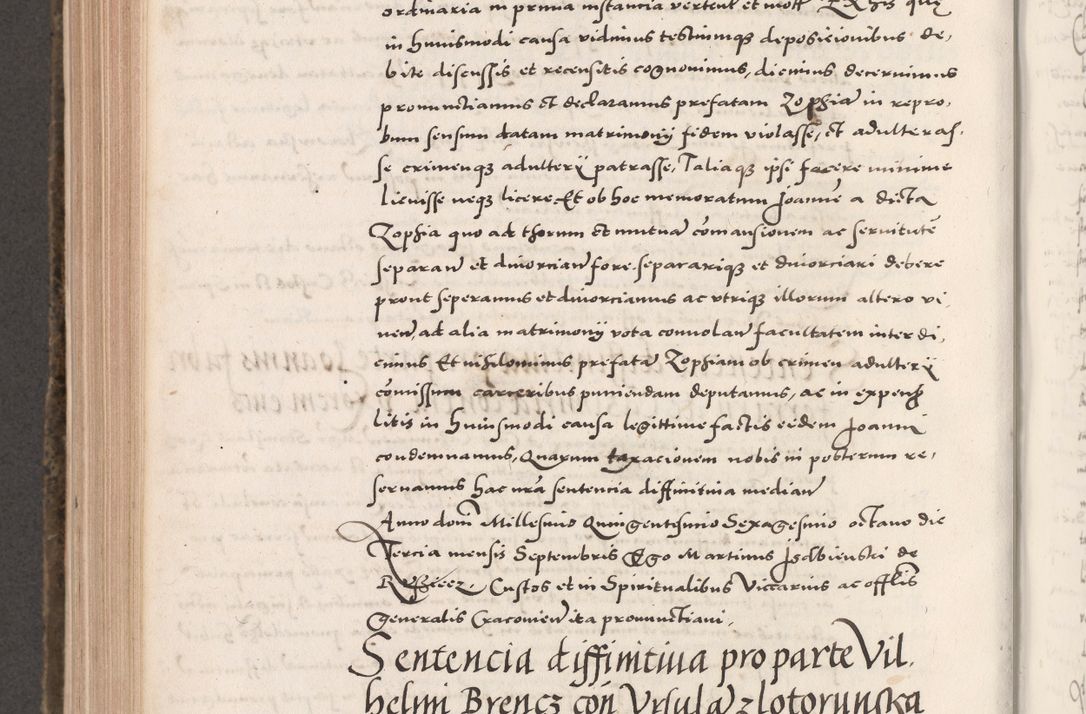 ordinaria in prima instancia vertent et mot Ex his que
in huiusmodi causa vidimus testiumqz deposicionibus de,
bite discussis et recensitis cognovimus, dicimus decernimus
pronunctiamus et declaramus prefatam Zophia in repro,
bum sensum datam matrimonij fidem violasse, et adulteras,
se crimenqz adulterij patrasse, Taliaqz ipsi facere minime
licuisse neqz licere Et ob hoc memoratum Joanne a dicta
Zophia quo ad thorum et mutua comansionem ac servitute
separan et divorcian fore separariqz et divorciari debere
prout seperamus et divorciamus ac vtriqz illorum altero vi
ven, ad alia matrimonij vota convolan facultatem interdi
cimus Et nihilominus prefata Zophiam ob crimen adulterij
comissum carceribus puniendam deputamus, ac in expens
litis in huiusmodi causa legittime factis eidem Joanni
condemnamus, Quarum taxacionem nobis in posterum re,
servamus hac nra sentencia diffinitiva median
Anno dom Millesimo Quingentesimo Sexagesimo octavo die
Tercia mensis Septembris Ego Martinus Isdbienski de
Custos et in Spiritualibus Viccarius ac offlis
Generalis Cracovien ita pronunctiavi,
Sentencia diffinitiua pro parte Vil,
helmi Brencz con Vrsula zlotorunska